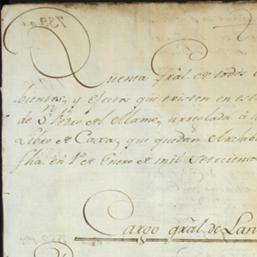 Cuenta Gral de todos
bienes, y efectos que existen en est
de Sn Pedro el Mame, arreglada á
Libro de Caxa, que quedan
fha. en 1º de Enero de mil setecien
Cargo gral. de Lan